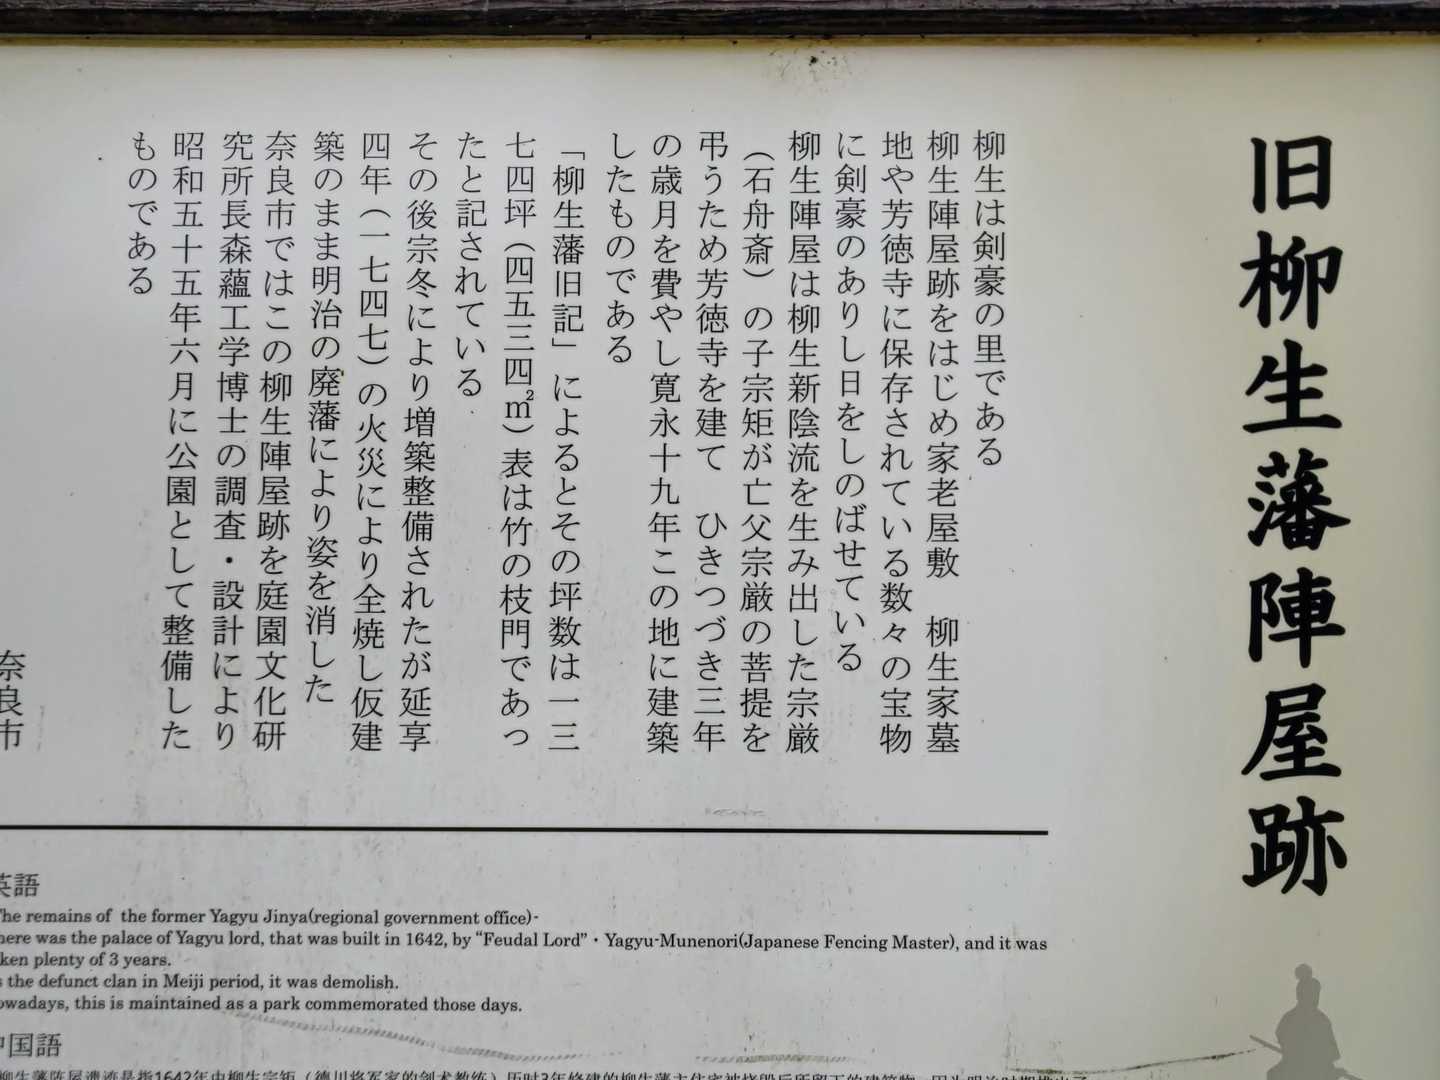 旧柳生藩陣屋跡
柳生は剣豪の里である
柳生陣屋跡をはじめ家老屋敷　柳生家墓
地や芳徳寺に保存されている数々の宝物
に剣豪のありし日をしのばせている
柳生陣屋は柳生新陰流を生み出した宗厳
（石舟斎）の子宗矩が亡父宗厳の菩提を
弔うため芳徳寺を建て　ひきつづき三年
の歳月を費やし寛永十九年この地に建築
したものである
「柳生藩旧記」によるとその坪数は一三
七四坪（四五三四㎡）表は竹の枝門であっ
たと記されている
その後宗冬により増築整備されたが延享
四年（一七四七）の火災により全焼し仮建
築のまま明治の廃藩により姿を消した
奈良市ではこの柳生陣屋跡を庭園文化研
究所長森蘊工学博士の調査・設計により
昭和五十五年六月に公園として整備した
ものである
奈良市
英語
The remains of the former Yagyu Jinya(regional government office)-
here was the palace of Yagyu lord, that was built in 1642, by “Feudal Lord”・Yagyu-Munenori(Japanese Fencing Master), and it was
ken plenty of 3 years.
s the defunct clan in Meiji period, it was demolish.
owadays, this is maintained as a park commemorated those days.
中国語
柳生藩阵屋遗迹是指1642年由柳生宗矩（德川将军家的剑术教练）历时3年修建的柳生藩主住宅被烧毁后所留下的建筑物